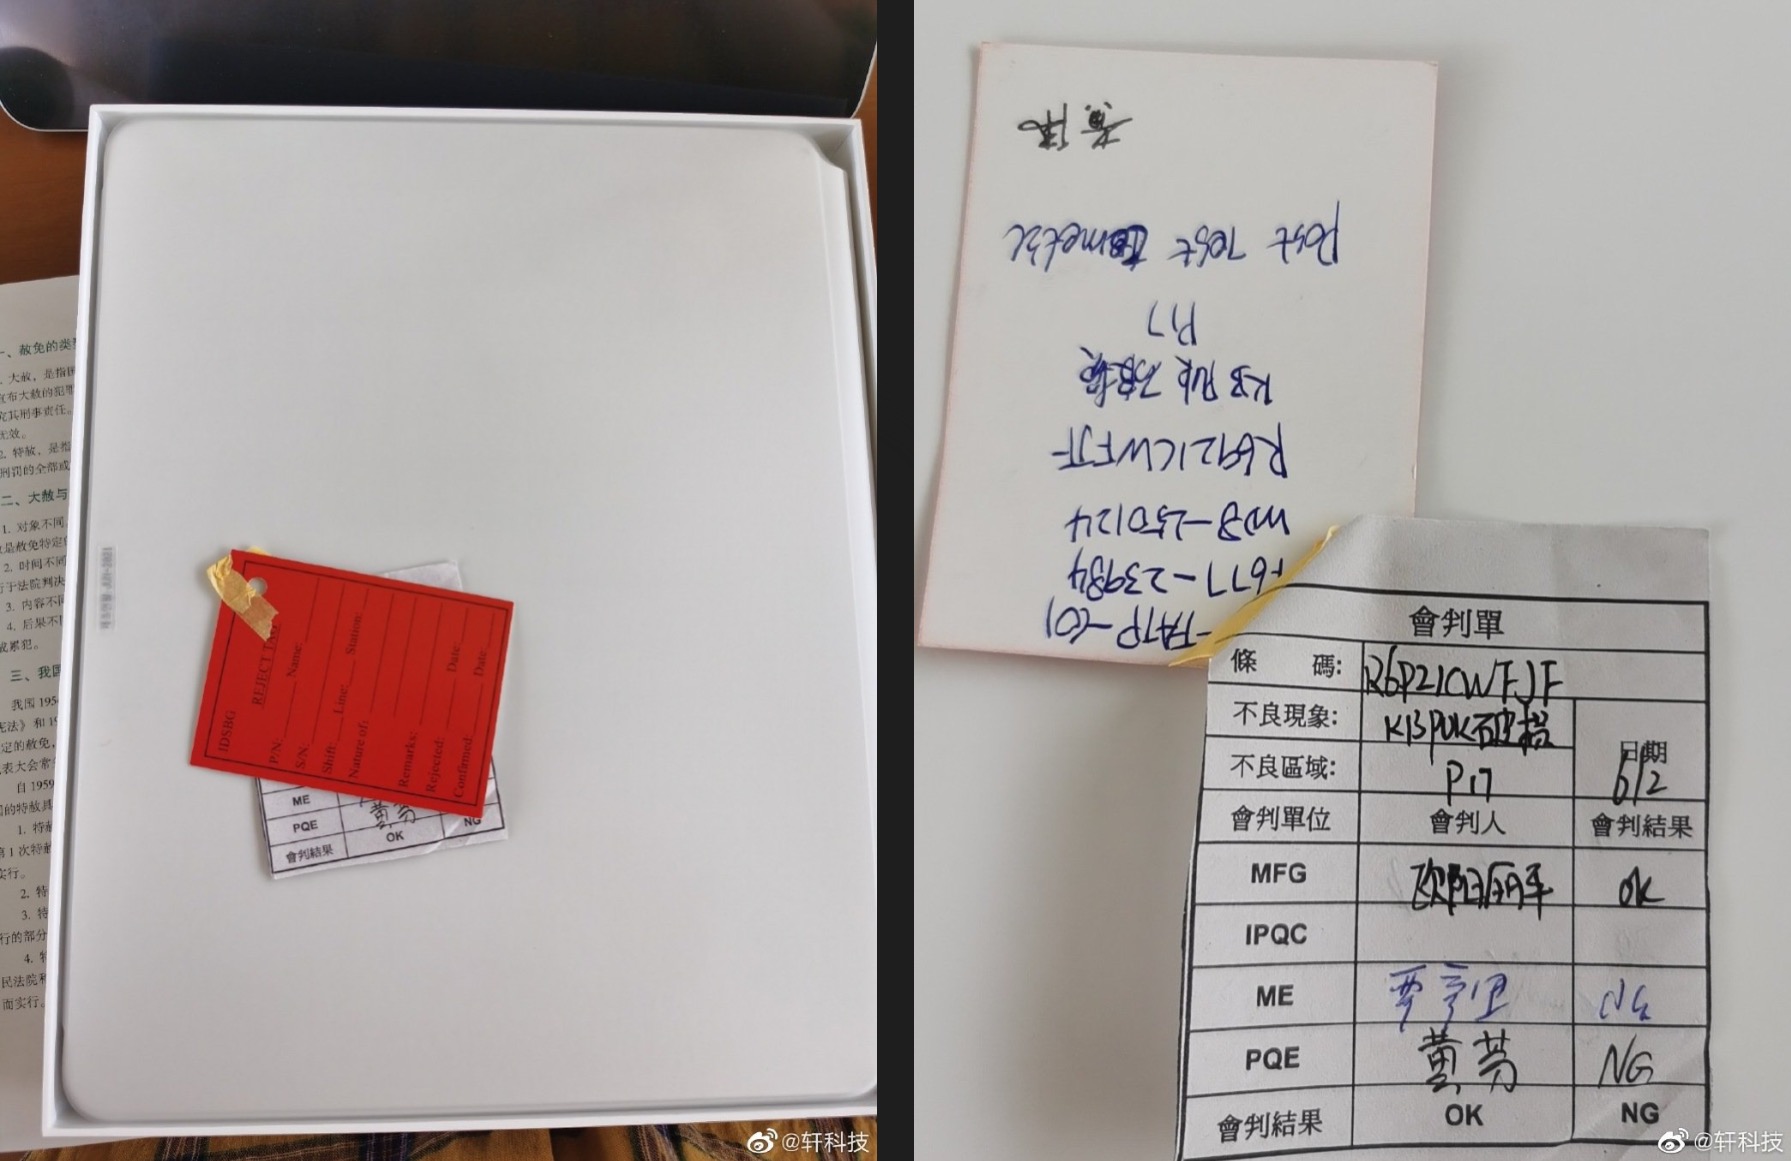 一、赦免的类
大赦，是指
宣布大赦的犯罪
究其刑事责任。
无效。
2. 特赦，是指
刑罚的全部或
二、大赦与
1. 对象不同
是赦免特定的
2. 时间不同
行于法院判决
3. 内容不同
4. 后果不
成累犯。
三、我国
我国 195
宪法》和 1
定的赦免，
表大会常
自 1959
的特赦具
1. 特赦
第 1 次特赦
实行。
2. 特
3. 特
行的部分
4. 特
民法院和
而实行。
IDSBG
REJECT TAG
P/N: Name:
S/N
Shift: Line: Station:
Nature of:
Remarks:
Rejected: Date
Confirmed: Date
ME
PQE 黄芳 NG
會判結果 OK
@轩科技
Post Test Cosmetic
P17
R6921CWFJF
WDB-250124
F677-23984
FATP-(01
會判單
條 碼: R6P21CWFJF
不良現象: KB PUK破損
日期
不良區域: P17 6/2
會判單位 會判人 會判結果
MFG 欧阳丽军 OK
IPQC
ME NG
PQE 黄芳 NG
會判結果 OK NG
@轩科技